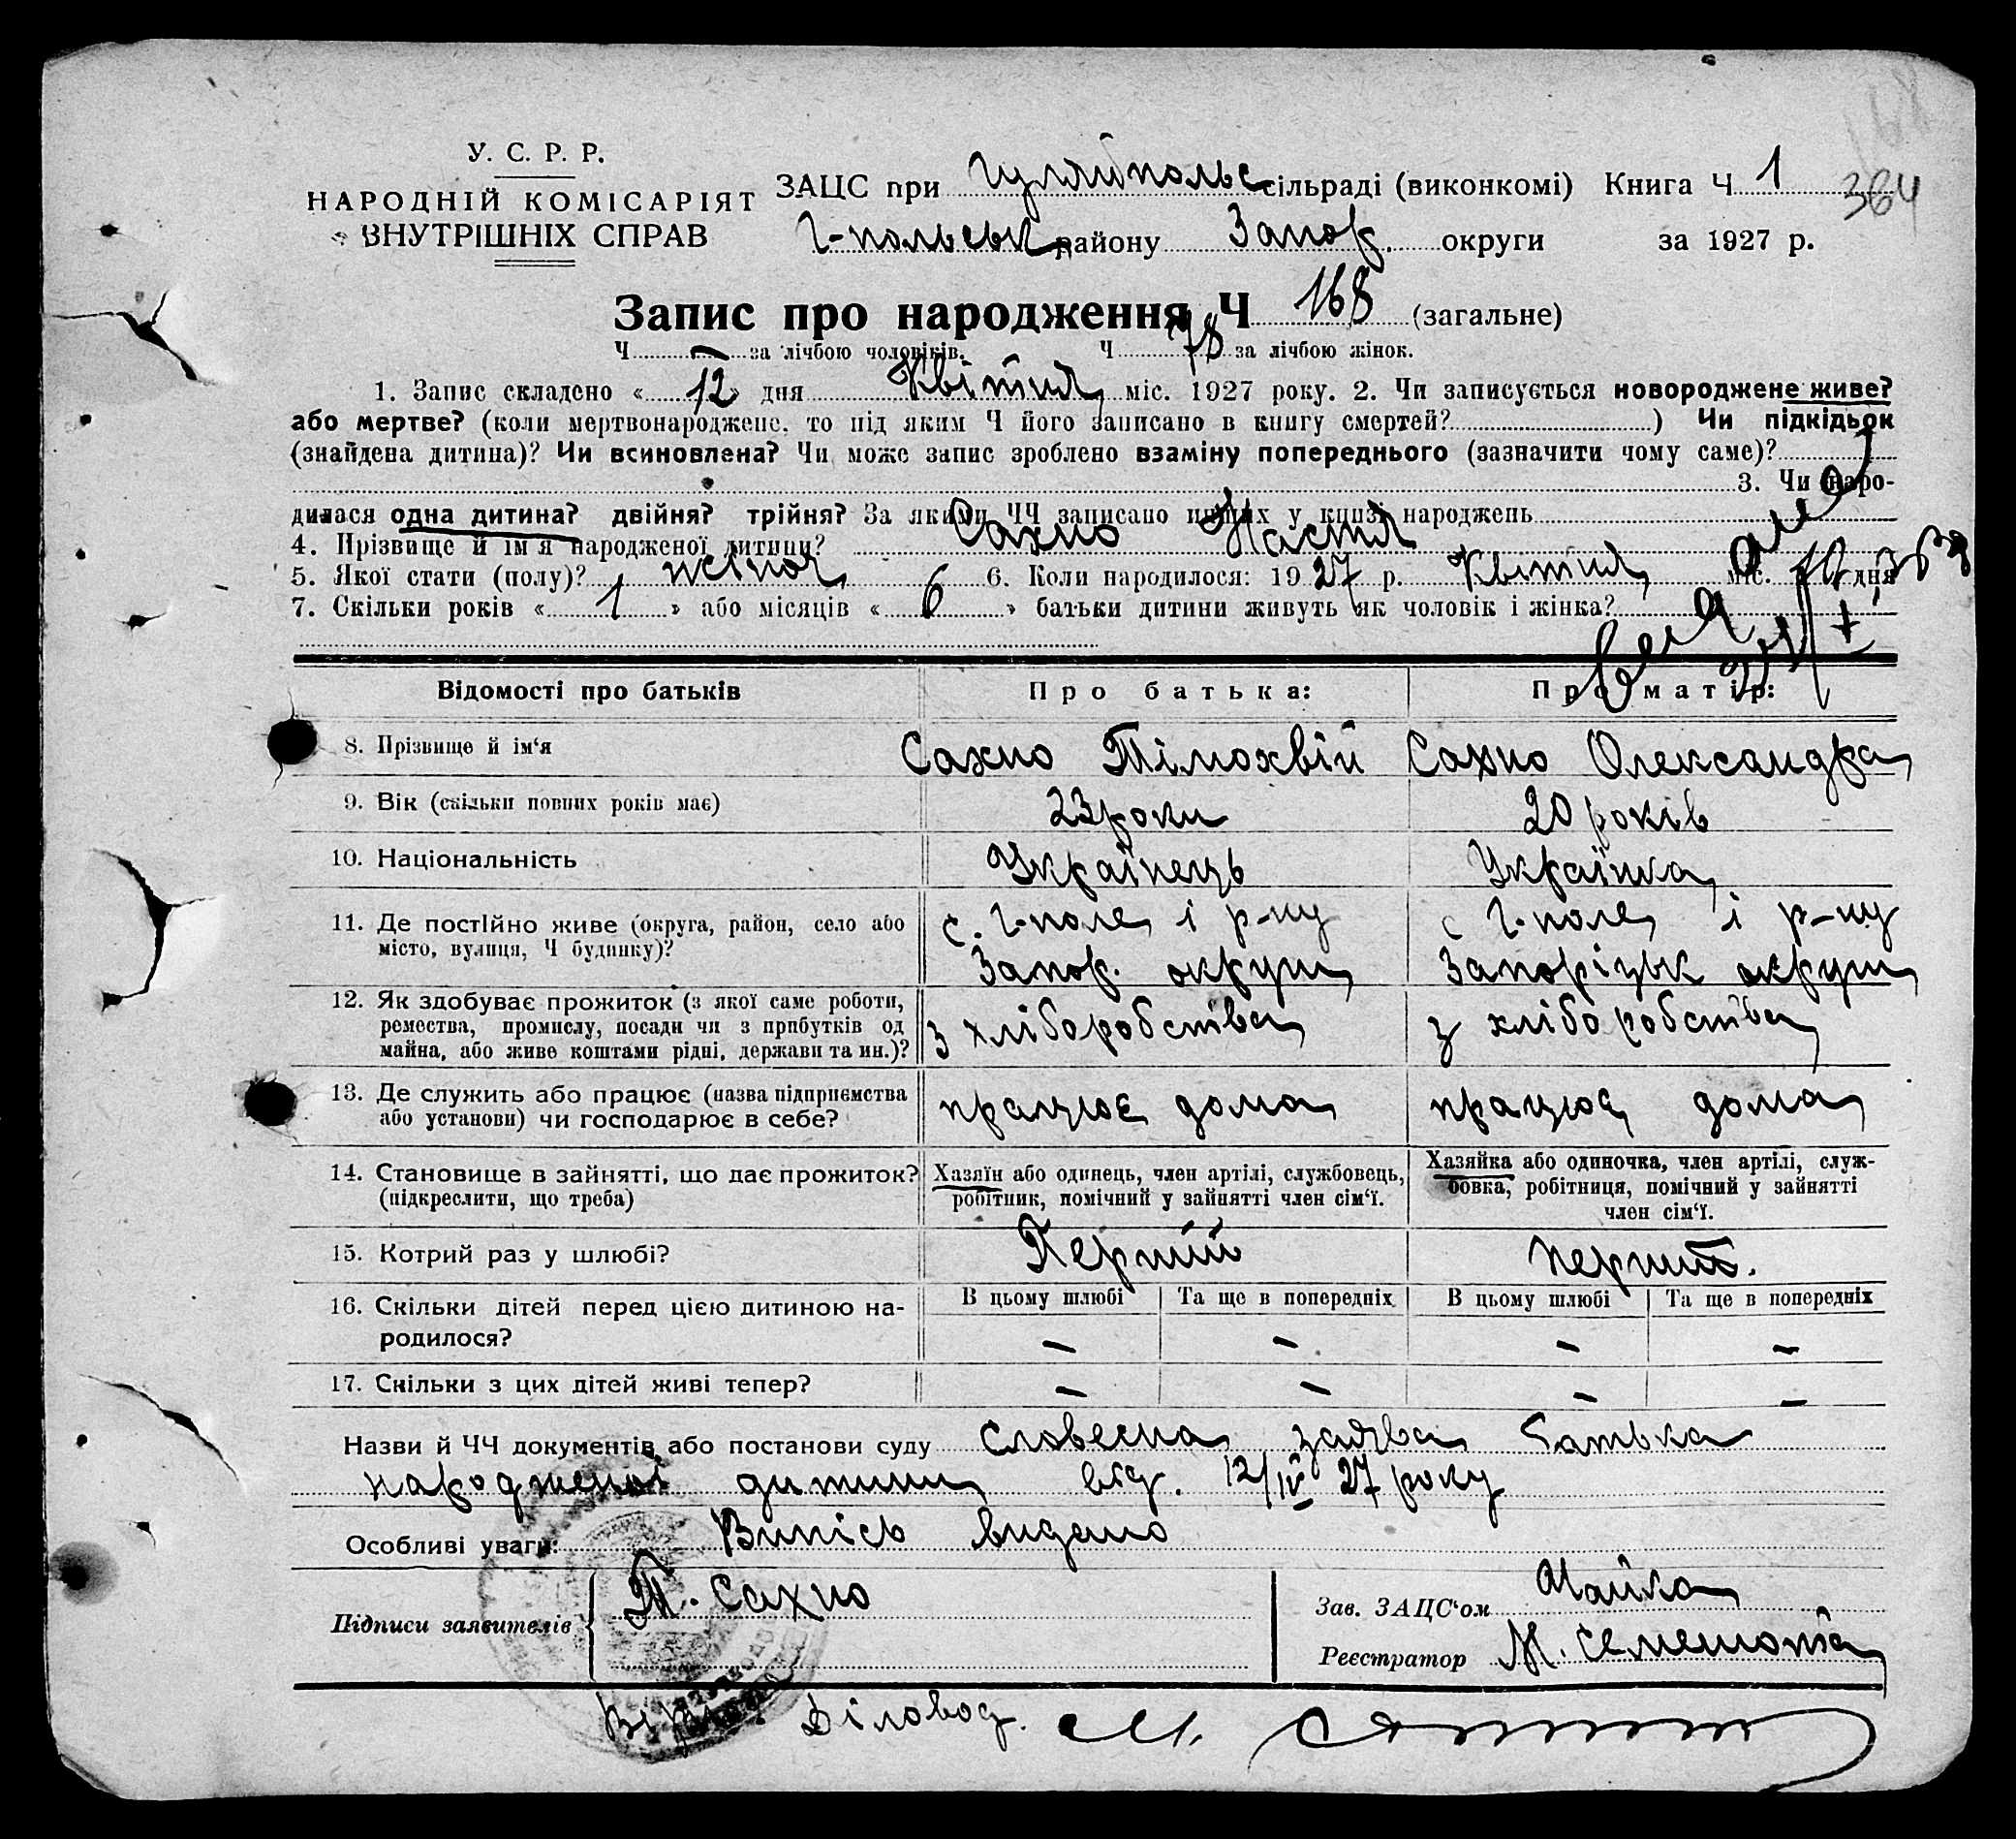 У. С. Р. Р.
НАРОДНІЙ КОМІСАРІЯТ
ВНУТРІШНІХ СПРАВ
ЗАЦС при Гуляйпольс сільраді (виконкомі) Книга Ч 1
364
Г-польськ району Запор. округи за 1927 р.
Запис про народження Ч 168 (загальне)
Ч — за лічбою чоловіків. Ч 78 за лічбою жінок.
1. Запис складено « 12 » дня Квітня міс. 1927 року. 2. Чи записується новороджене живе?
або мертве? (коли мертвонароджене, то під яким Ч його записано в книгу смертей? ) Чи підкідьок
(знайдена дитина)? Чи всиновлена? Чи може запис зроблено взаміну попереднього (зазначити чому саме)?
3. Чи наро-
дилася одна дитина? двійня? трійня? За якими ЧЧ записано інших у книзі народжень
4. Прізвище й ім'я народженої дитини? Сахно Настя
5. Якої стати (полу)? жіноч, 6. Коли народилося: 19 27 р. Квітня, міс. 10 дня
7. Скільки років « 1 » або місяців « 6 » батьки дитини живуть як чоловік і жінка?
Відомості про батьків Про батька: Про матір:
8. Прізвище й ім'я Сахно Тімохвій Сахно Олександра
9. Вік (скільки повних років має) 23 роки 20 років
10. Національність Українець Українка
11. Де постійно живе (округа, район, село або місто, вулиця, Ч будинку)? с. Г-поле, і р-ну с Г-поле, і р-ну
Запор. округи Запорізьк округи
12. Як здобуває прожиток (з якої саме роботи,
ремества, промислу, посади чи з прибутків од
майна, або живе коштами рідні, держави та ин.)? з хліборобства з хліборобства
13. Де служить або працює (назва підприємства
або установи) чи господарює в себе? працює дома працює дома
14. Становище в зайнятті, що дає прожиток?
(підкреслити, що треба)
Хазяїн або одинець, член артілі, службовець,
робітник, помічний у зайнятті член сім'ї.
Хазяйка або одиночка, член артілі, служ-
бовка, робітниця, помічний у зайнятті
член сім'ї.
15. Котрий раз у шлюбі? Перший перший.
16. Скільки дітей перед цією дитиною на-
родилося?
В цьому шлюбі Та ще в попередніх В цьому шлюбі Та ще в попередніх
— — — —
17. Скільки з цих дітей живі тепер? — — — —
Назви й ЧЧ документів або постанови суду словесна заява батька
народженої дитини від. 12/IV 27 року
Особливі уваги: Випісь видано
Підписи заявителів Т. Сахно
Зав. ЗАЦС'ом
Реєстратор
Діловод.